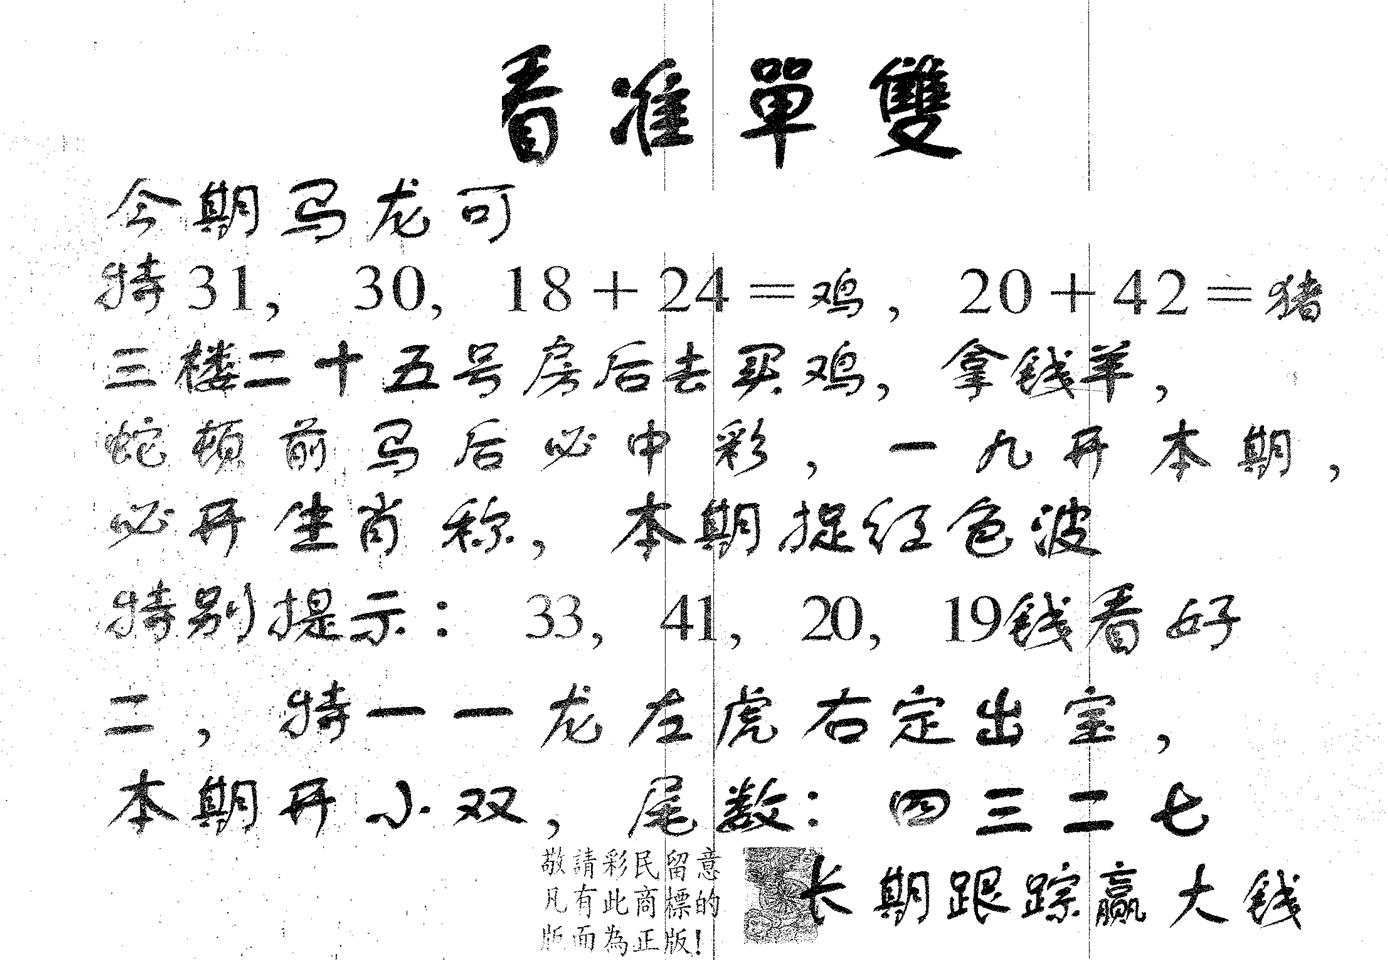 看准單雙
今期马龙可
特31, 30, 18+24=鸡, 20+42=猪
三楼二十五号房后去买鸡,拿钱羊,
蛇顿前马后必中彩,一九开本期,
必开生肖称,本期捉红色波
特别提示: 33, 41, 20, 19钱看好
二,特一一龙左虎右定出宝,
本期开小双,尾数:四三二七
敬請彩民留意
凡有此商標的
版面為正版!
长期跟踪赢大钱